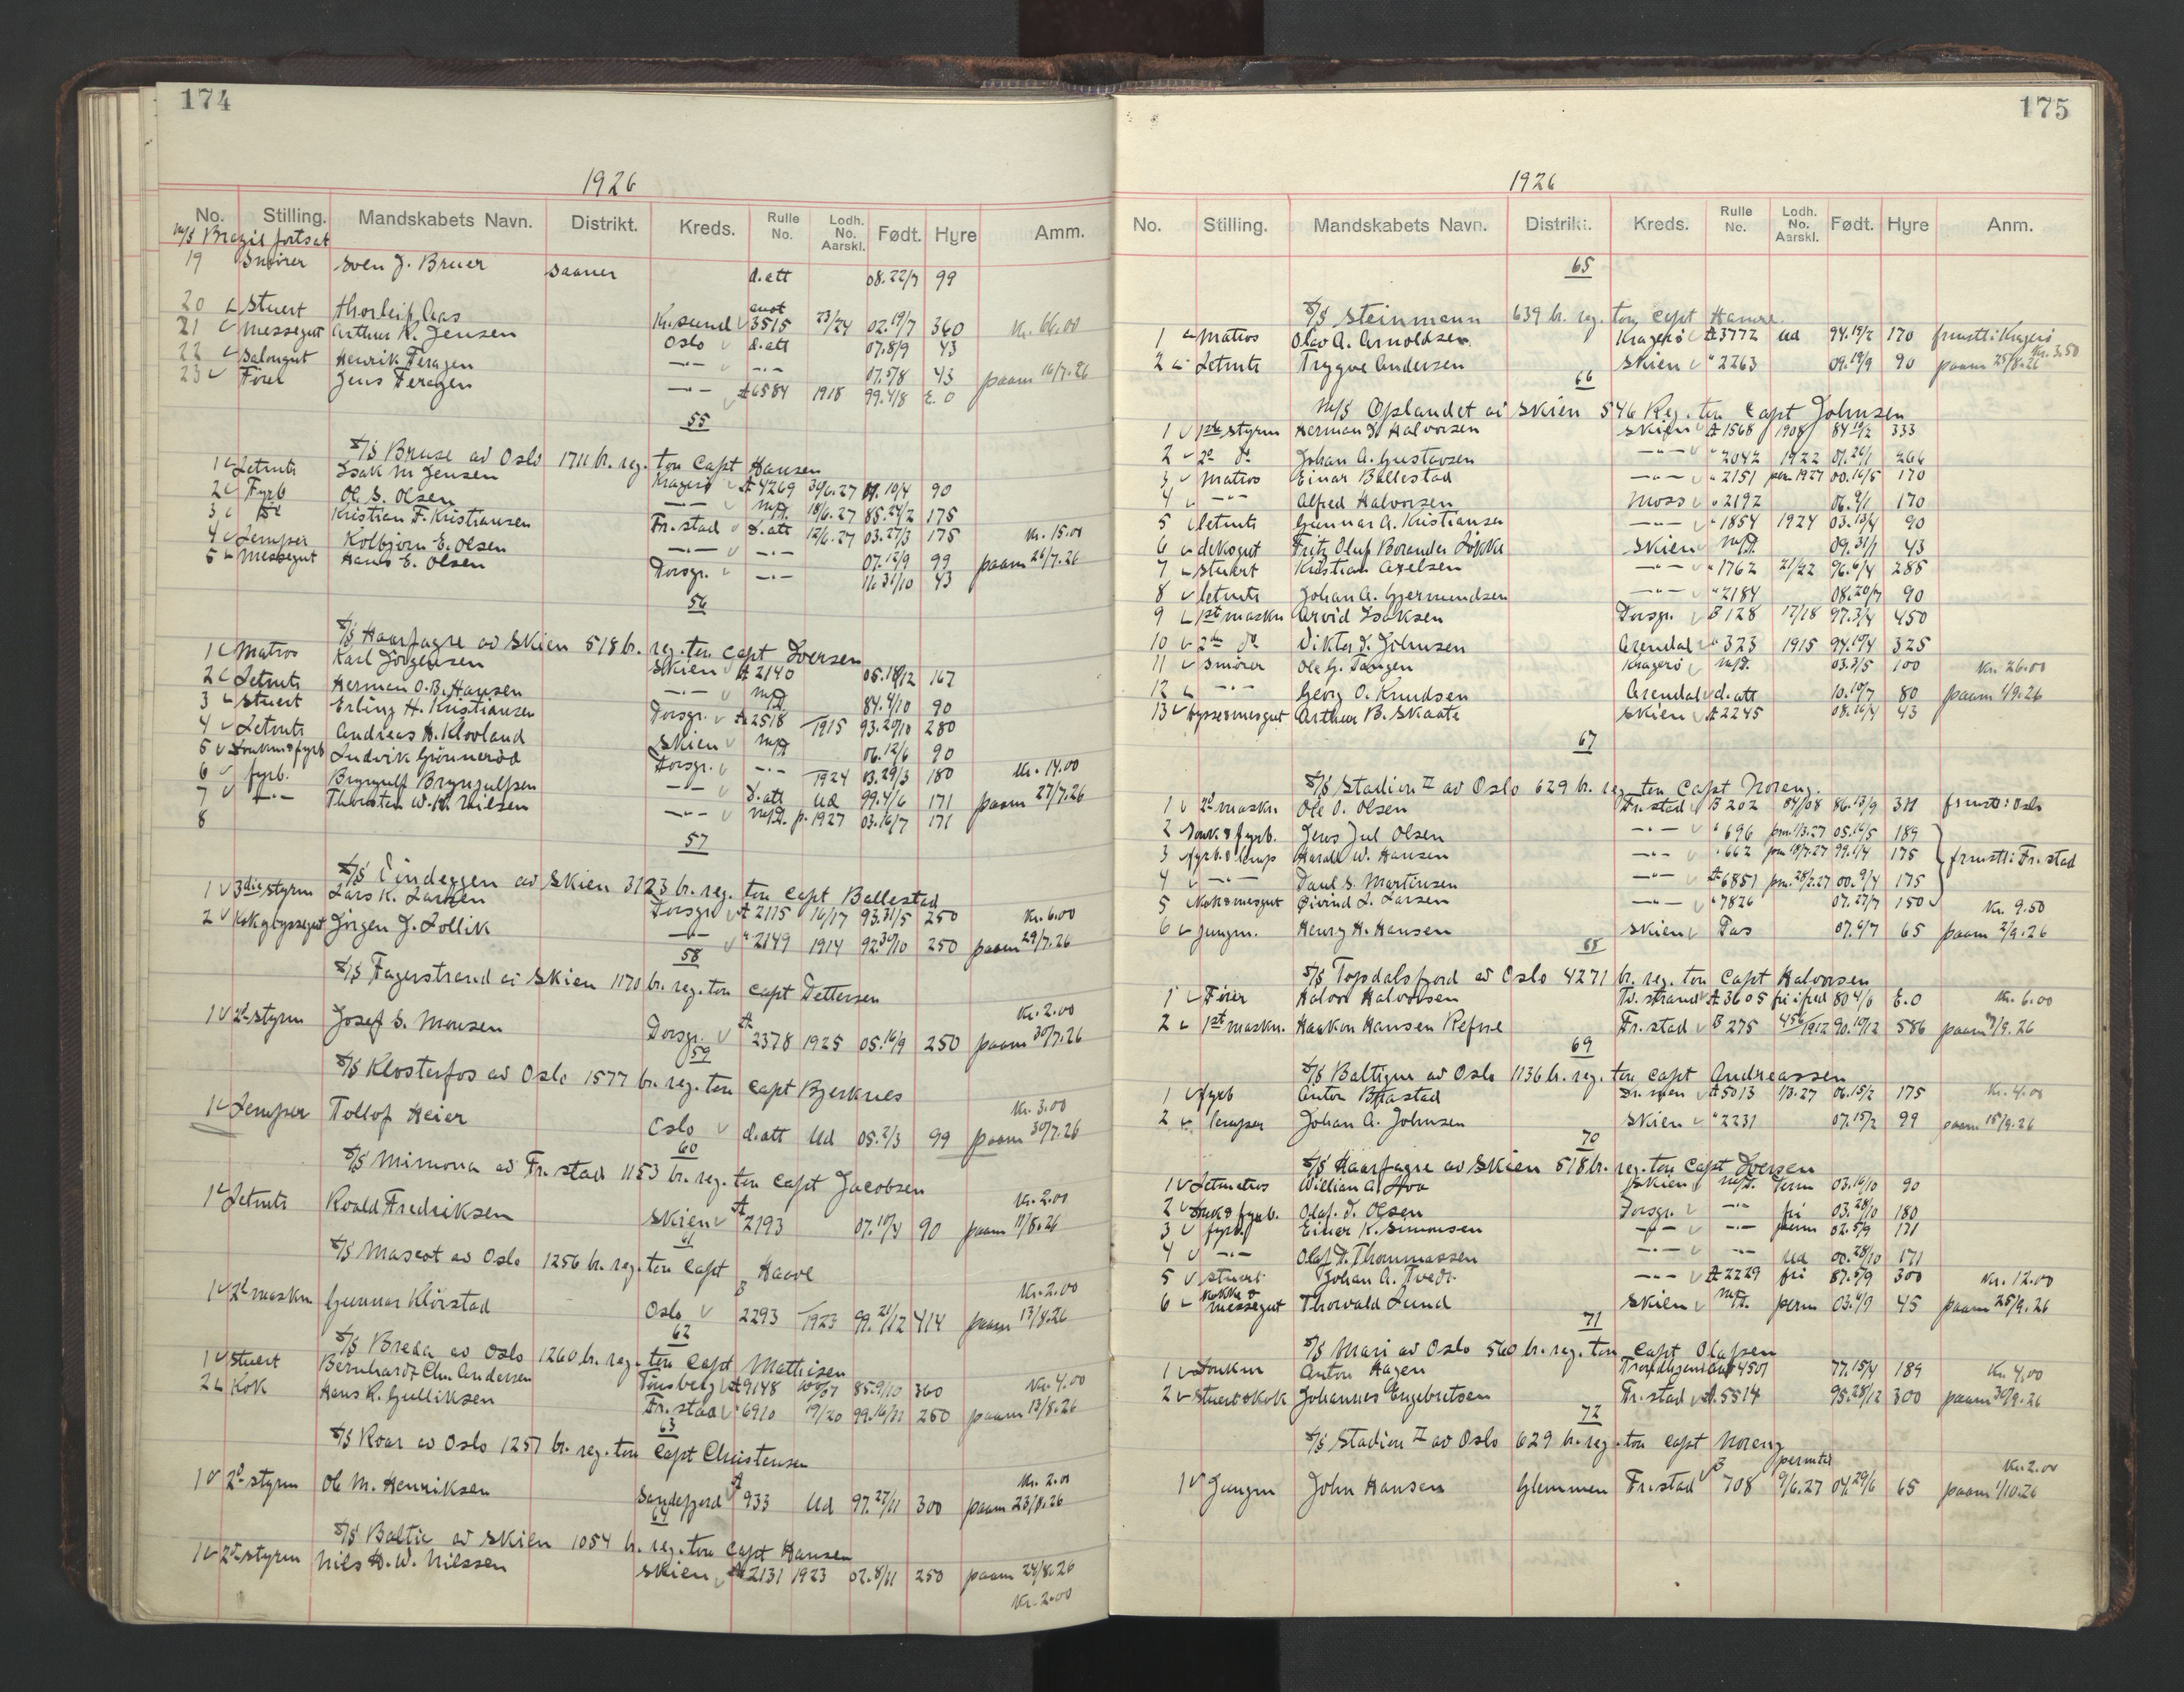 174
1926
No. Stilling. Mandskabets Navn. Distrikt. Kreds. Rulle No. Lodh. No. Aarskl. Født. Hyre Amm.
M/S Brazil fortsat
19 Smører Sven J. Bruer Saaner d.att 08.22/7 99
20 Stuert Thorleif Aas Kr.sund 3515 23/24 02.19/7 360 Kr. 66.00
21 Messegut Arthur R. Jensen Oslo d.att 07.8/9 43
22 Salongut Henrik Feragen -"- -"- 07.5/8 43 paam 16/7.26
23 Fører Jens Feragen -"- A 6584 1918 99.4/8 E.O
55
S/S Bruse av Oslo 1711 br. reg. ton Capt Hansen
1 Letmts Isak M Jensen Kragerø A 4269 30/6.27 07.10/4 90
2 Fyrb Ol. S. Olsen -"- M/A 18/6.27 85.24/2 175
3 do Kristian F. Kristiansen Fr.stad d.att 12/6.27 03.27/3 175 Kr. 15.00
4 Lemper Kolbjørn E. Olsen -"- -"- 07.12/9 99 paam 26/7.26
5 Messegut Hans E. Olsen Porsgr. -"- 11.31/10 43
56
S/S Haarfagre av Skien 518 br. reg. ton Capt Iversen
1 Matros Karl Jørgensen Skien A 2140 05.18/12 167
2 Letmts Herman O.B. Hansen -"- M/A 84.4/10 90
3 Stuert Erling H. Kristiansen Porsgr. A 2518 1915 93.20/10 280
4 Letmts Andreas H. Klovland Skien M/A 06.12/6 90
5 Donkm & fyrb Ludvik Grønnerød Porsgr. -"- 1924 03.29/3 180 Kr. 14.00
6 fyrb. Brynyulf Brynjulfsen -"- d.att Ud 99.4/6 171 paam 27/7.26
7 -"- Thorsten W. M. Nilsen -"- M/A p. 1927 03.16/7 171
8
57
S/S Eindeggen av Skien 3123 br. reg. ton Capt Ballestad
1 3die styrm Lars K. Larsen Porsgr A 2115 16/17 93.31/5 250 Kr. 6.00
2 Kok g byssegut Jørgen J. Lollik -"- " 2149 1914 92.30/10 250 paam 29/7.26
58
S/S Fagerstrand av Skien 1170 br. reg. ton Capt Pettersen
1 2d styrm Josef S. Monsen Porsgr. A 2378 1925 05.16/9 250 Kr. 2.00 paam 30/7.26
59
S/S Klosterfos av Oslo 1577 br. reg. ton Capt Bjerknes
1 Lemper Tollof Heier Oslo d.att Ud 05.2/3 99 Kr. 3.00 paam 30/7.26
60
S/S Mimona av Fr.stad 1153 br. reg. ton Capt Jacobsen
1 Letmts Roald Fredriksen Skien A 2193 07.10/4 90 Kr. 2.00 paam 11/8.26
61
S/S Mascot av Oslo 1256 br. reg. ton Capt Haave
1 2d maskn Gunnar Klørstad Oslo B 2293 1923 99.21/12 414 Kr. 2.00 paam 13/8.26
62
S/S Breda av Oslo 1260 br. reg. ton Capt Mathisen
1 Stuert Bernhardt Chr. Andersen Tønsberg A 9148 07 85.9/10 360 Kr. 4.00
2 Kok Hans K. Gulliksen Fr.stad " 6910 19/20 99.16/11 250 paam 13/8.26
63
S/S Roar av Oslo 1257 br. reg. ton Capt Christensen
1 2d styrm Ol. M. Henriksen Sandefjord A 933 Ud 97.27/11 300 Kr. 2.00 paam 23/8.26
64
S/S Baltic av Skien 1054 br. reg. ton Capt Hansen
1 2d styrm Nils H. W. Nilssen Skien A 2131 1923 02.8/11 250 paam 24/8.26
Kr. 2.00
175
1926
No. Stilling. Mandskabets Navn. Distrikt. Kreds. Rulle No. Lodh. No. Aarskl. Født. Hyre Anm.
65
S/S Steinmann 639 br. reg. ton Capt Hamre
1 Matros Olav A. Arnoldsen Kragerø A 3772 Ud 94.19/2 170 frmstt i Kragerø
2 Letmts Trygve Andersen Skien " 2263 09.19/9 90 paam 25/8.26 Kr. 3.50
66
M/S Oplandet av Skien 546 Reg. ton Capt Johnsen
1 1ste styrm Herman D. Halvorsen Skien A 1568 1908 84.19/2 333
2 2d do Johan A. Gustavsen -"- " 2042 1922 01.26/1 266
3 Matros Einar Ballestad -"- " 2151 per. 1927 00.16/5 170
4 -"- Alfred Halvorsen Moss " 2192 06.9/1 170
5 Letmts Gunnar A. Kristiansen -"- " 1854 1924 03.13/4 90
6 deksgut Fritz Oluf Borander Løkke Skien M/A 09.31/1 43
7 Stuert Kristian Axelsen -"- " 1762 21/22 96.6/4 285
8 letmts Johan A. Gjermundsen -"- " 2184 08.20/7 90
9 1st maskn Arvid Isaksen Porsgr. B 128 17/18 97.3/4 450
10 2den do Viktor I. Johnsen Arendal " 323 1915 94.19/4 325
11 Smører Ole G. Tangen Kragerø M/A. 03.3/5 100 Kr. 26.00
12 -"- Georg O. Knudsen Arendal d.att 10.19/7 80 paam 1/9.26
13 byssemesgut Arthur B. Skaate Skien A 2245 08.16/4 43
67
S/S Stadion II av Oslo 629 br. reg. ton Capt Noreng.
1 2d maskn. Ole O. Olsen Fr.stad B 202 07/08 86.13/9 311 frmstt i Oslo
2 Donk & fyrb. Jens Jul Olsen -"- " 696 prm. 1/3.27 05.16/5 189
3 fyrb. & lemp Harald W. Hansen -"- " 662 prm 18/7.27 99.1/4 175 frmstt i Fr.stad
4 -"- Paul S. Martinsen -"- A 6851 prm. 28/2.27 00.9/4 175
5 Kok & mesgut Øivind L. Larsen -"- " 7826 07.27/7 150 Kr. 9.50
6 jungm. Henry H. Hansen Skien Pas 07.6/7 65 paam 2/9.26
68
S/S Topdalsfjord av Oslo 4271 br. reg. ton Capt Halvorsen
1 Fører Halvor Halvorsen Tv.strand A 3605 fri i fred 80.4/6 E.O Kr. 6.00
2 1st maskn. Haakon Hansen Refne Fr.stad B 275 456/1912 90.10/12 586 paam /9.26
69
S/S Baltique av Oslo 1136 br. reg. ton Capt Andreassen
1 fyrb Anton Braastad Dr.men A 5013 1/3.27 06.15/2 175 Kr. 4.00
2 lemper Johan A. Johnsen Skien " 2231 07.15/2 99 paam 15/9.26
70
S/S Haarfagre av Skien 518 br. reg. ton Capt Iversen
1 Letmatros William A. Moa Skien M/A. Perm 03.16/10 90
2 Donk & fyrb. Olaf. I. Olsen Porsgr. -"- fri 03.20/10 180
3 fyrb. Einar K. Simonsen -"- -"- perm 02.5/9 171
4 -"- Olaf I. Thommassen -"- -"- Ud 00.28/10 171
5 Stuert Johan A. Tvedt -"- A 2229 fri 87.5/9 300 Kr. 12.00
6 Koks & messegut Thorvald Lund Skien M/A. perm 03.4/9 45 paam 25/9.26
71
S/S Mari av Oslo 560 br. reg. ton Capt Olafsen
1 Donkm Anton Hagen Trondhjem 4501 77.15/4 189 Kr. 4.00
2 Stuert & kok Johannes Engebretsen Fr.stad A. 5514 95.28/12 300 paam 30/9.26
72
S/S Stadion II av Oslo 629 br. reg. ton Capt Noreng
1 Jungm John Hansen Glemmen Fr.stad B 708 permtd 9/6.27 04.29/6 65 Kr. 2.00 paam 1/10.26